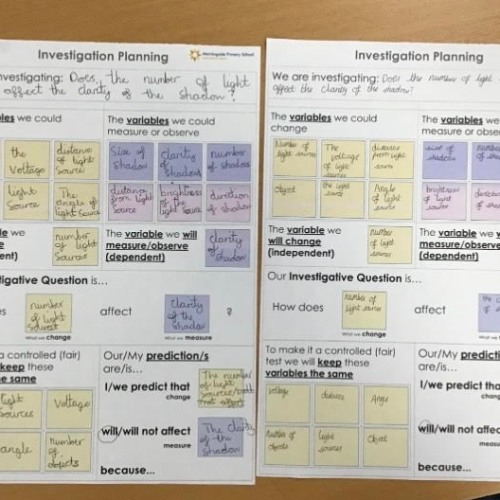 Investigation Planning
Morningside Primary School
investigating: Does the number of light
affect the clarity of the shadow?
we could
The variables we could
measure or observe
the
Voltage
distance
of light
Source
Size of
Shadow
clarity
of
shadows
number
of shadows
light
Source
The
angle of
light source
distance
from light
source
brightness
of the
light source
direction
of
shadow
we
number
of light
Sources
The variable we will
measure/observe
(dependent)
clarity
of
shadow
Investigative Question is...
number
of light
affect
clarity
of the
shadow
?
What we change
What we measure
a controlled (fair)
keep these
the same
light
sources
Voltage
angle
number
of
objects
Our/My prediction/s
are/is...
I/we predict that
change
The number
of light
will/will not affect
measure
The clarity
of the
shadow
because...
Investigation Planning
We are investigating: Does the number of light
affect the clarity of the shadow?
The variables we could
change
The variables we
measure or obse
Number of
light source
The
voltage
of light
source
distance
from light
source
size of
shadow
object
the light
source
Angle
of light
source
brightness
of light
source
The variable we
will change
(independent)
number
of light
sources
The variable we w
measure/observe
(dependent)
Our Investigative Question is...
How does
number of
light
source
affect
the
What we change
To make it a controlled (fair)
test we will keep these
variables the same
voltage
distance
Angle
number of
objects
light
sources
Object
Our/My predict
are/is...
I/we predict that
change
will/will not affect
measure
because...